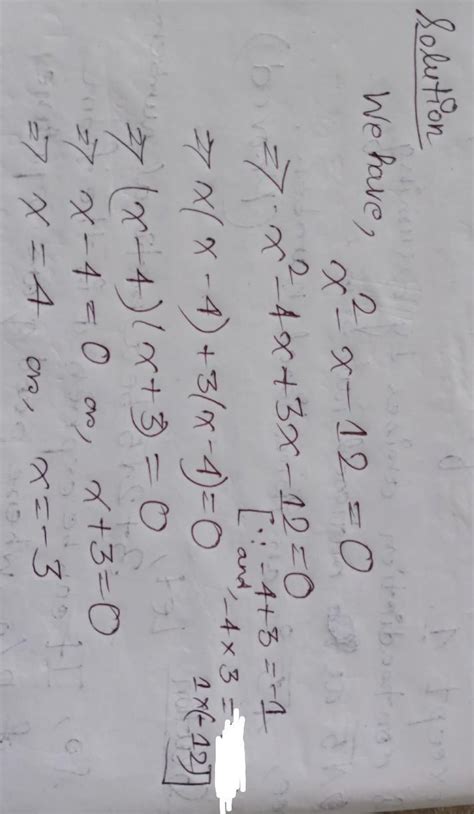 Solution
We have,
x² - x - 12 = 0
⇒ x² - 4x + 3x - 12 = 0
[∵ -4 + 3 = -1
and, -4 × 3 =
1×(-12)]
⇒ x(x - 4) + 3(x - 4) = 0
⇒ (x - 4)(x + 3) = 0
⇒ x - 4 = 0 or, x + 3 = 0
⇒ x = 4 or, x = -3